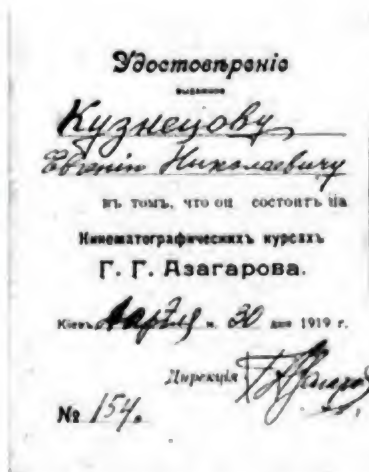 Удостовѣреніе
выданное
Кузнецову
Евгенію Николаевичу
въ томъ, что он состоитъ на
Кинематографическихъ курсахъ
Г. Г. Азагарова.
Кіевъ, Апрѣля м. 30 дня 1919 г.
Дирекція
№ 154.